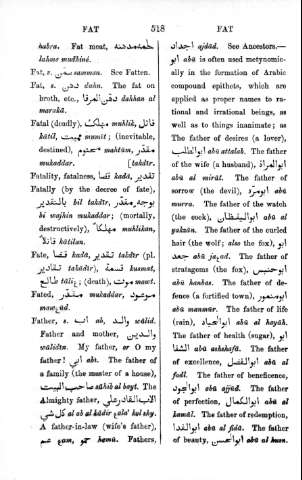 FAT 518 FAT
habra. Fat meat, لحمة مدهنة
lahme mudhina.
Fat, s. سمن samman. See Fatten.
Fat, s. دهن dahn. The fat on
broth, etc., دهن المرقا dahhan al
maraka.
Fatal (deadly), مهلك muhlik, قاتل
kâtil, مميت mumît; (inevitable,
destined), محتوم mahtûm, مقدّر
mukaddar. [takdîr.
Fatality, fatalness, قضا kada, تقدير
Fatally (by the decree of fate),
بالتقدير bil takdîr, بوجه مقدّر
bi wajhin mukaddar; (mortally,
destructively), مهلكاً muhlikan,
قاتلاً kâtilan.
Fate, قضا kada, تقدير takdîr (pl.
تقادير takâdîr), قسمة kusmat,
طالع tâli; (death), موت mawt.
Fated, مقدّر mukaddar, موعود
mawʿûd.
Father, s. اب ab, والد wâlid.
Father and mother, والدين
wâlidîn. My father, or O my
father! ابي abî. The father of
a family (the master of a house),
صاحب البيت sâhib al bayt. The
Almighty father, الاب القادر على
كل شي al ab al kâdir ʿalaʾ kul shy.
A father-in-law (wife's father),
عم ʿam, حمو hamû. Fathers,
اجداد ajdâd. See Ancestors.—
ابو abû is often used metonymic-
ally in the formation of Arabic
compound epithets, which are
applied as proper names to ra-
tional and irrational beings, as
well as to things inanimate; as
The father of desires (a lover),
ابو الطلب abû attalab. The father
of the wife (a husband), ابو المراة
abû al mirât. The father of
sorrow (the devil), ابو مرّة abû
murra. The father of the watch
(the cock), ابو اليقظان abû al
yakzân. The father of the curled
hair (the wolf; also the fox), ابو
جعد abû jaʿad. The father of
stratagems (the fox), ابو حنبس
abû hanbas. The father of de-
fence (a fortified town), ابو منصور
abû mansûr. The father of life
(rain), ابو الحياة abû al hayâh.
The father of health (sugar), ابو
الشفا abû ashshafâ. The father
of excellence, ابو الفضل abû al
fadl. The father of beneficence,
ابو الجود abû ajjûd. The father
of perfection, ابو الكمال abû al
kamâl. The father of redemption,
ابو الفدا abû al fidâ. The father
of beauty, ابو الحسن abû al husn.